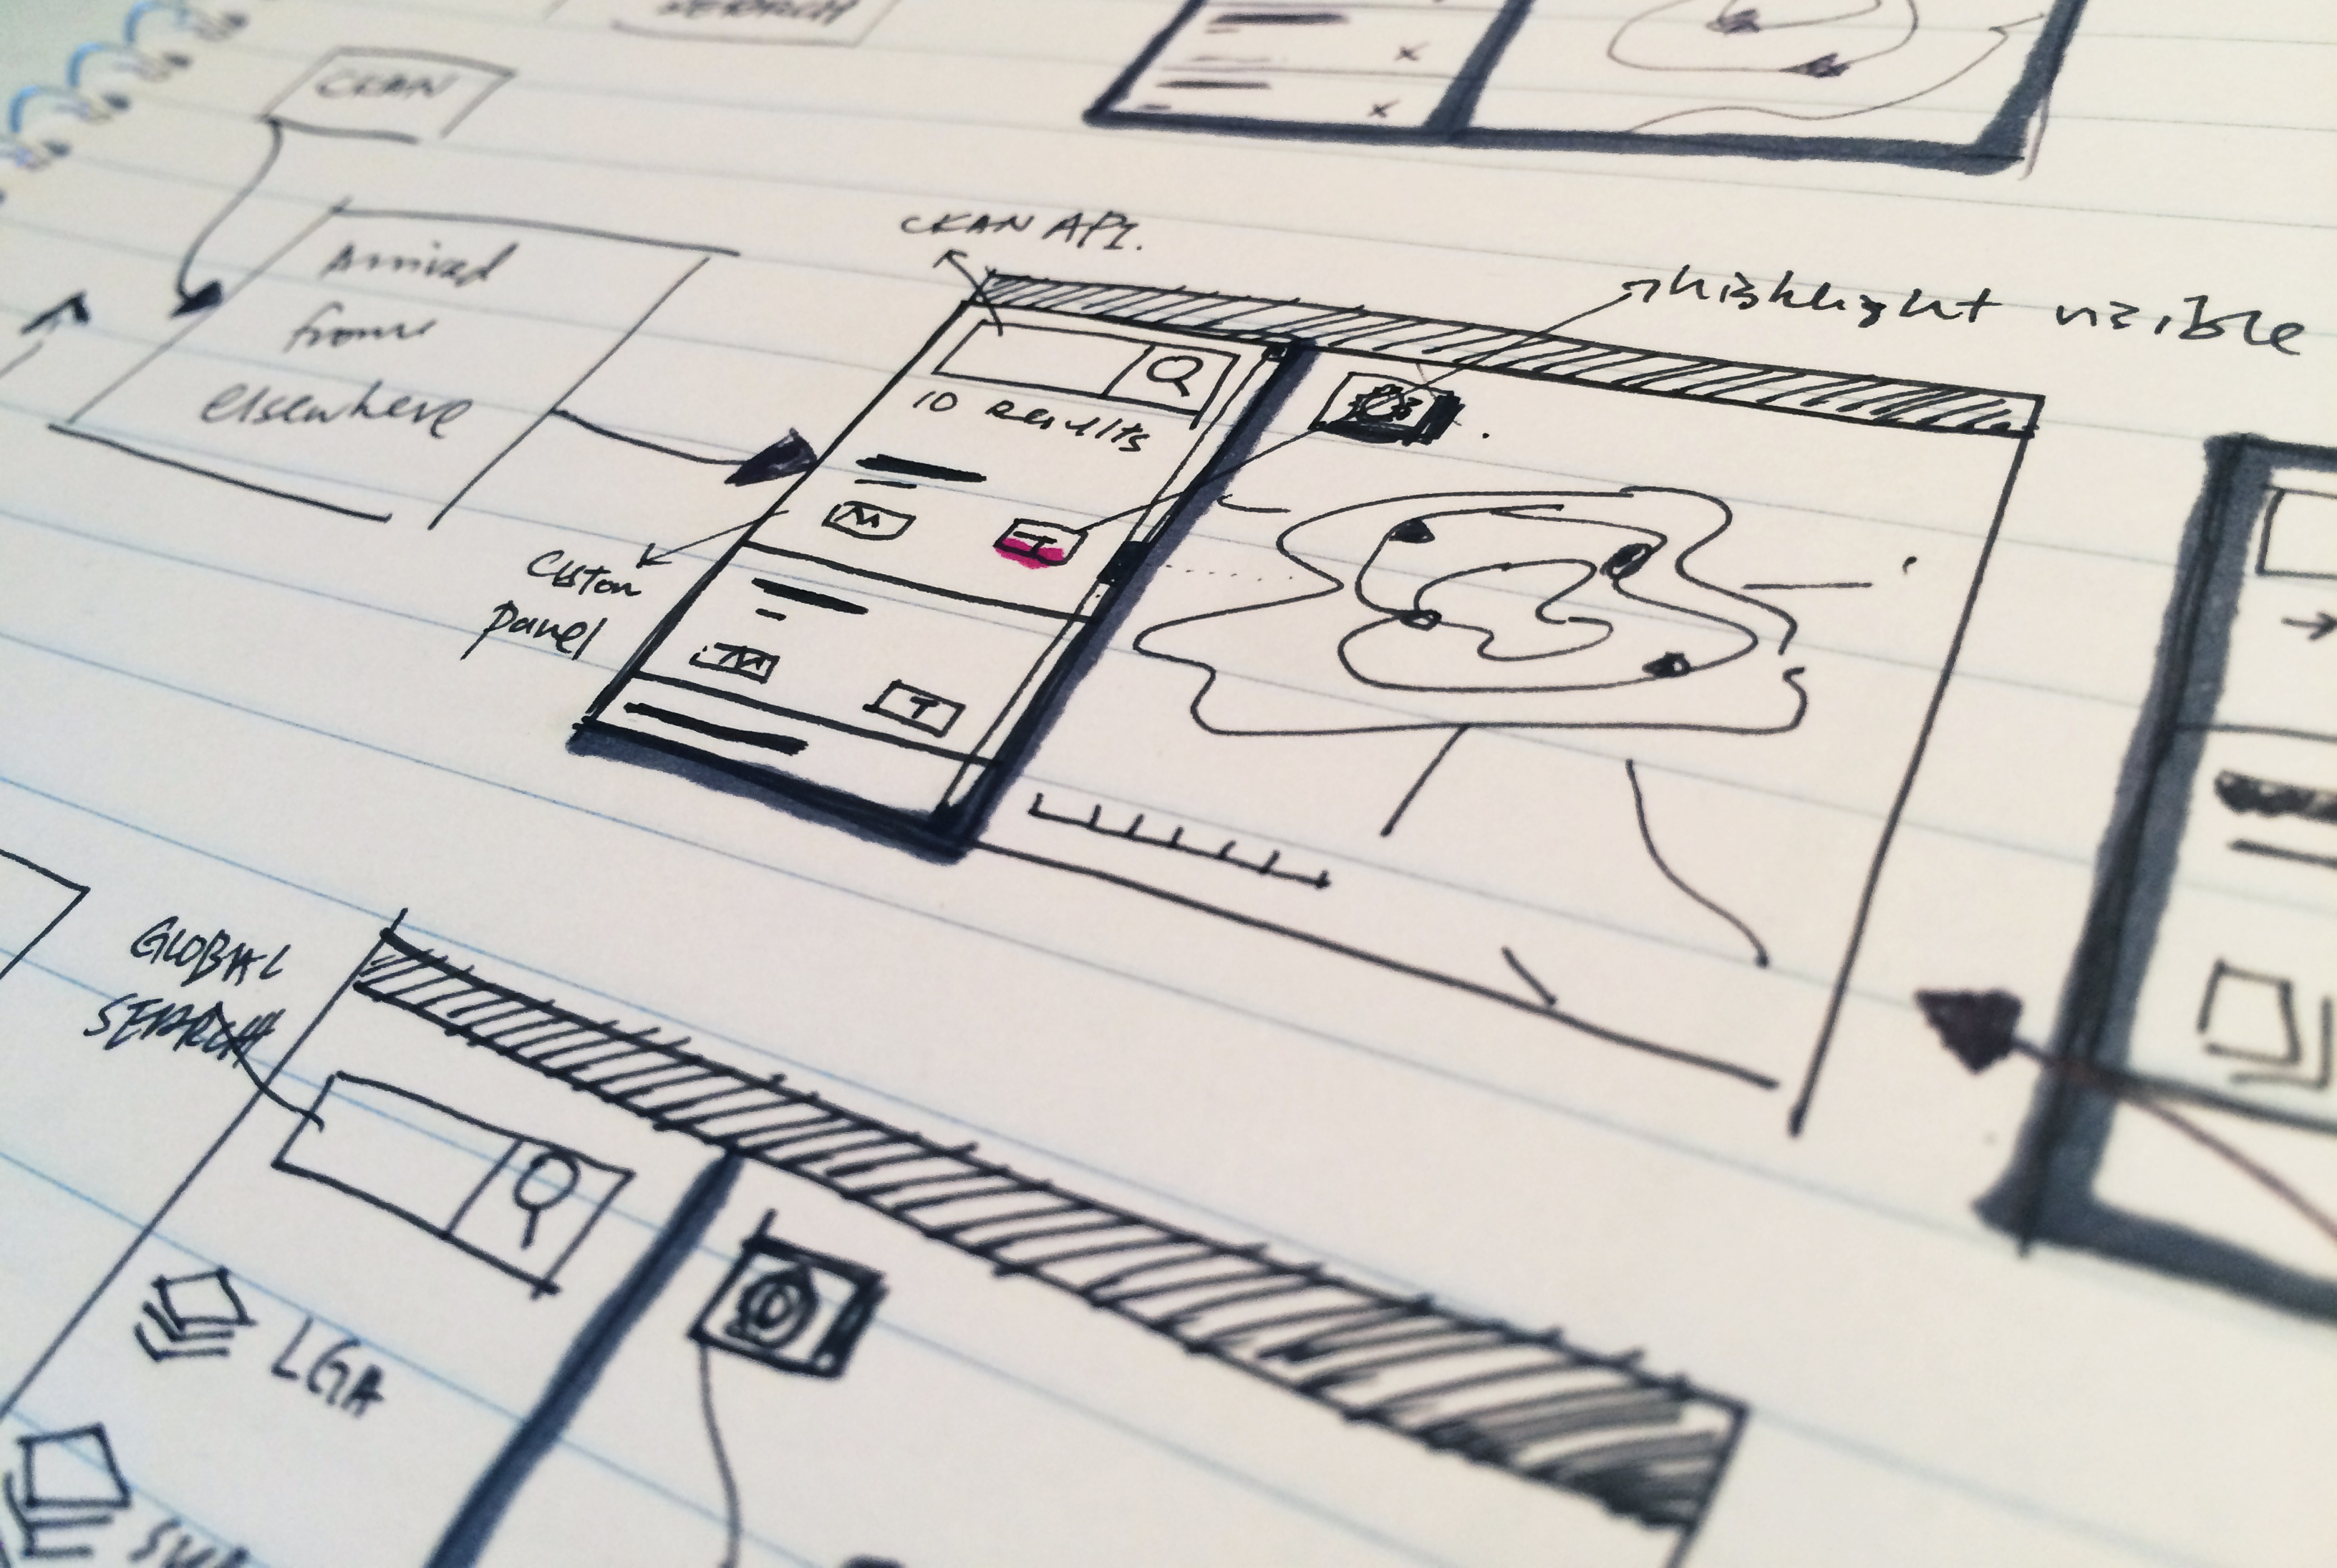 SEARCH
CKAN
Arrived
from
elsewhere
CKAN API.
highlight visible
10 Results
M
T
Custom
panel
M
T
GLOBAL
SEARCH
LGA